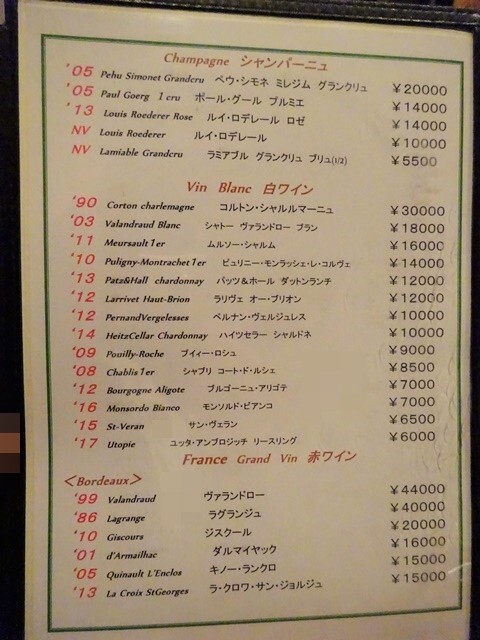 Champagne シャンパーニュ
'05 Pehu Simonet Grandcru ペウ・シモネ ミレジム グランクリュ ¥20000
'05 Paul Goerg 1 cru ポール・グール プルミエ ¥14000
'13 Louis Roederer Rose ルイ・ロデレール ロゼ ¥14000
NV Louis Roederer ルイ・ロデレール ¥10000
NV Lamiable Grandcru ラミアブル グランクリュ ブリュ(1/2) ¥5500
Vin Blanc 白ワイン
'90 Corton charlemagne コルトン・シャルルマーニュ ¥30000
'03 Valandraud Blanc シャトー ヴァランドロー ブラン ¥18000
'11 Meursault 1er ムルソー・シャルム ¥16000
'10 Puligny-Montrachet 1er ピュリニー・モンラッシェ・レ・コルヴェ ¥14000
'13 Patz&Hall chardonnay パッツ&ホール ダットンランチ ¥12000
'12 Larrivet Haut-Brion ラリヴェ オー・ブリオン ¥12000
'12 PernandVergelesses ペルナン・ヴェルジュレス ¥10000
'14 HeitzCellar Chardonnay ハイツセラー シャルドネ ¥10000
'09 Pouilly-Roche プイィー・ロシュ ¥9000
'08 Chablis 1er シャブリ コート・ド・ルシェ ¥8500
'12 Bourgogne Aligote ブルゴーニュ・アリゴテ ¥7000
'16 Monsordo Bianco モンソルド・ビアンコ ¥7000
'15 St-Veran サン・ヴェラン ¥6500
'17 Utopie ユッタ・アンブロジッチ リースリング ¥6000
France Grand Vin 赤ワイン
<Bordeaux>
'99 Valandraud ヴァランドロー ¥44000
'86 Lagrange ラグランジュ ¥40000
'10 Giscours ジスクール ¥20000
'01 d'Armailhac ダルマイヤック ¥16000
'05 Quinault L'Enclos キノー・ランクロ ¥15000
'13 La Croix StGeorges ラ・クロワ・サン・ジョルジュ ¥15000